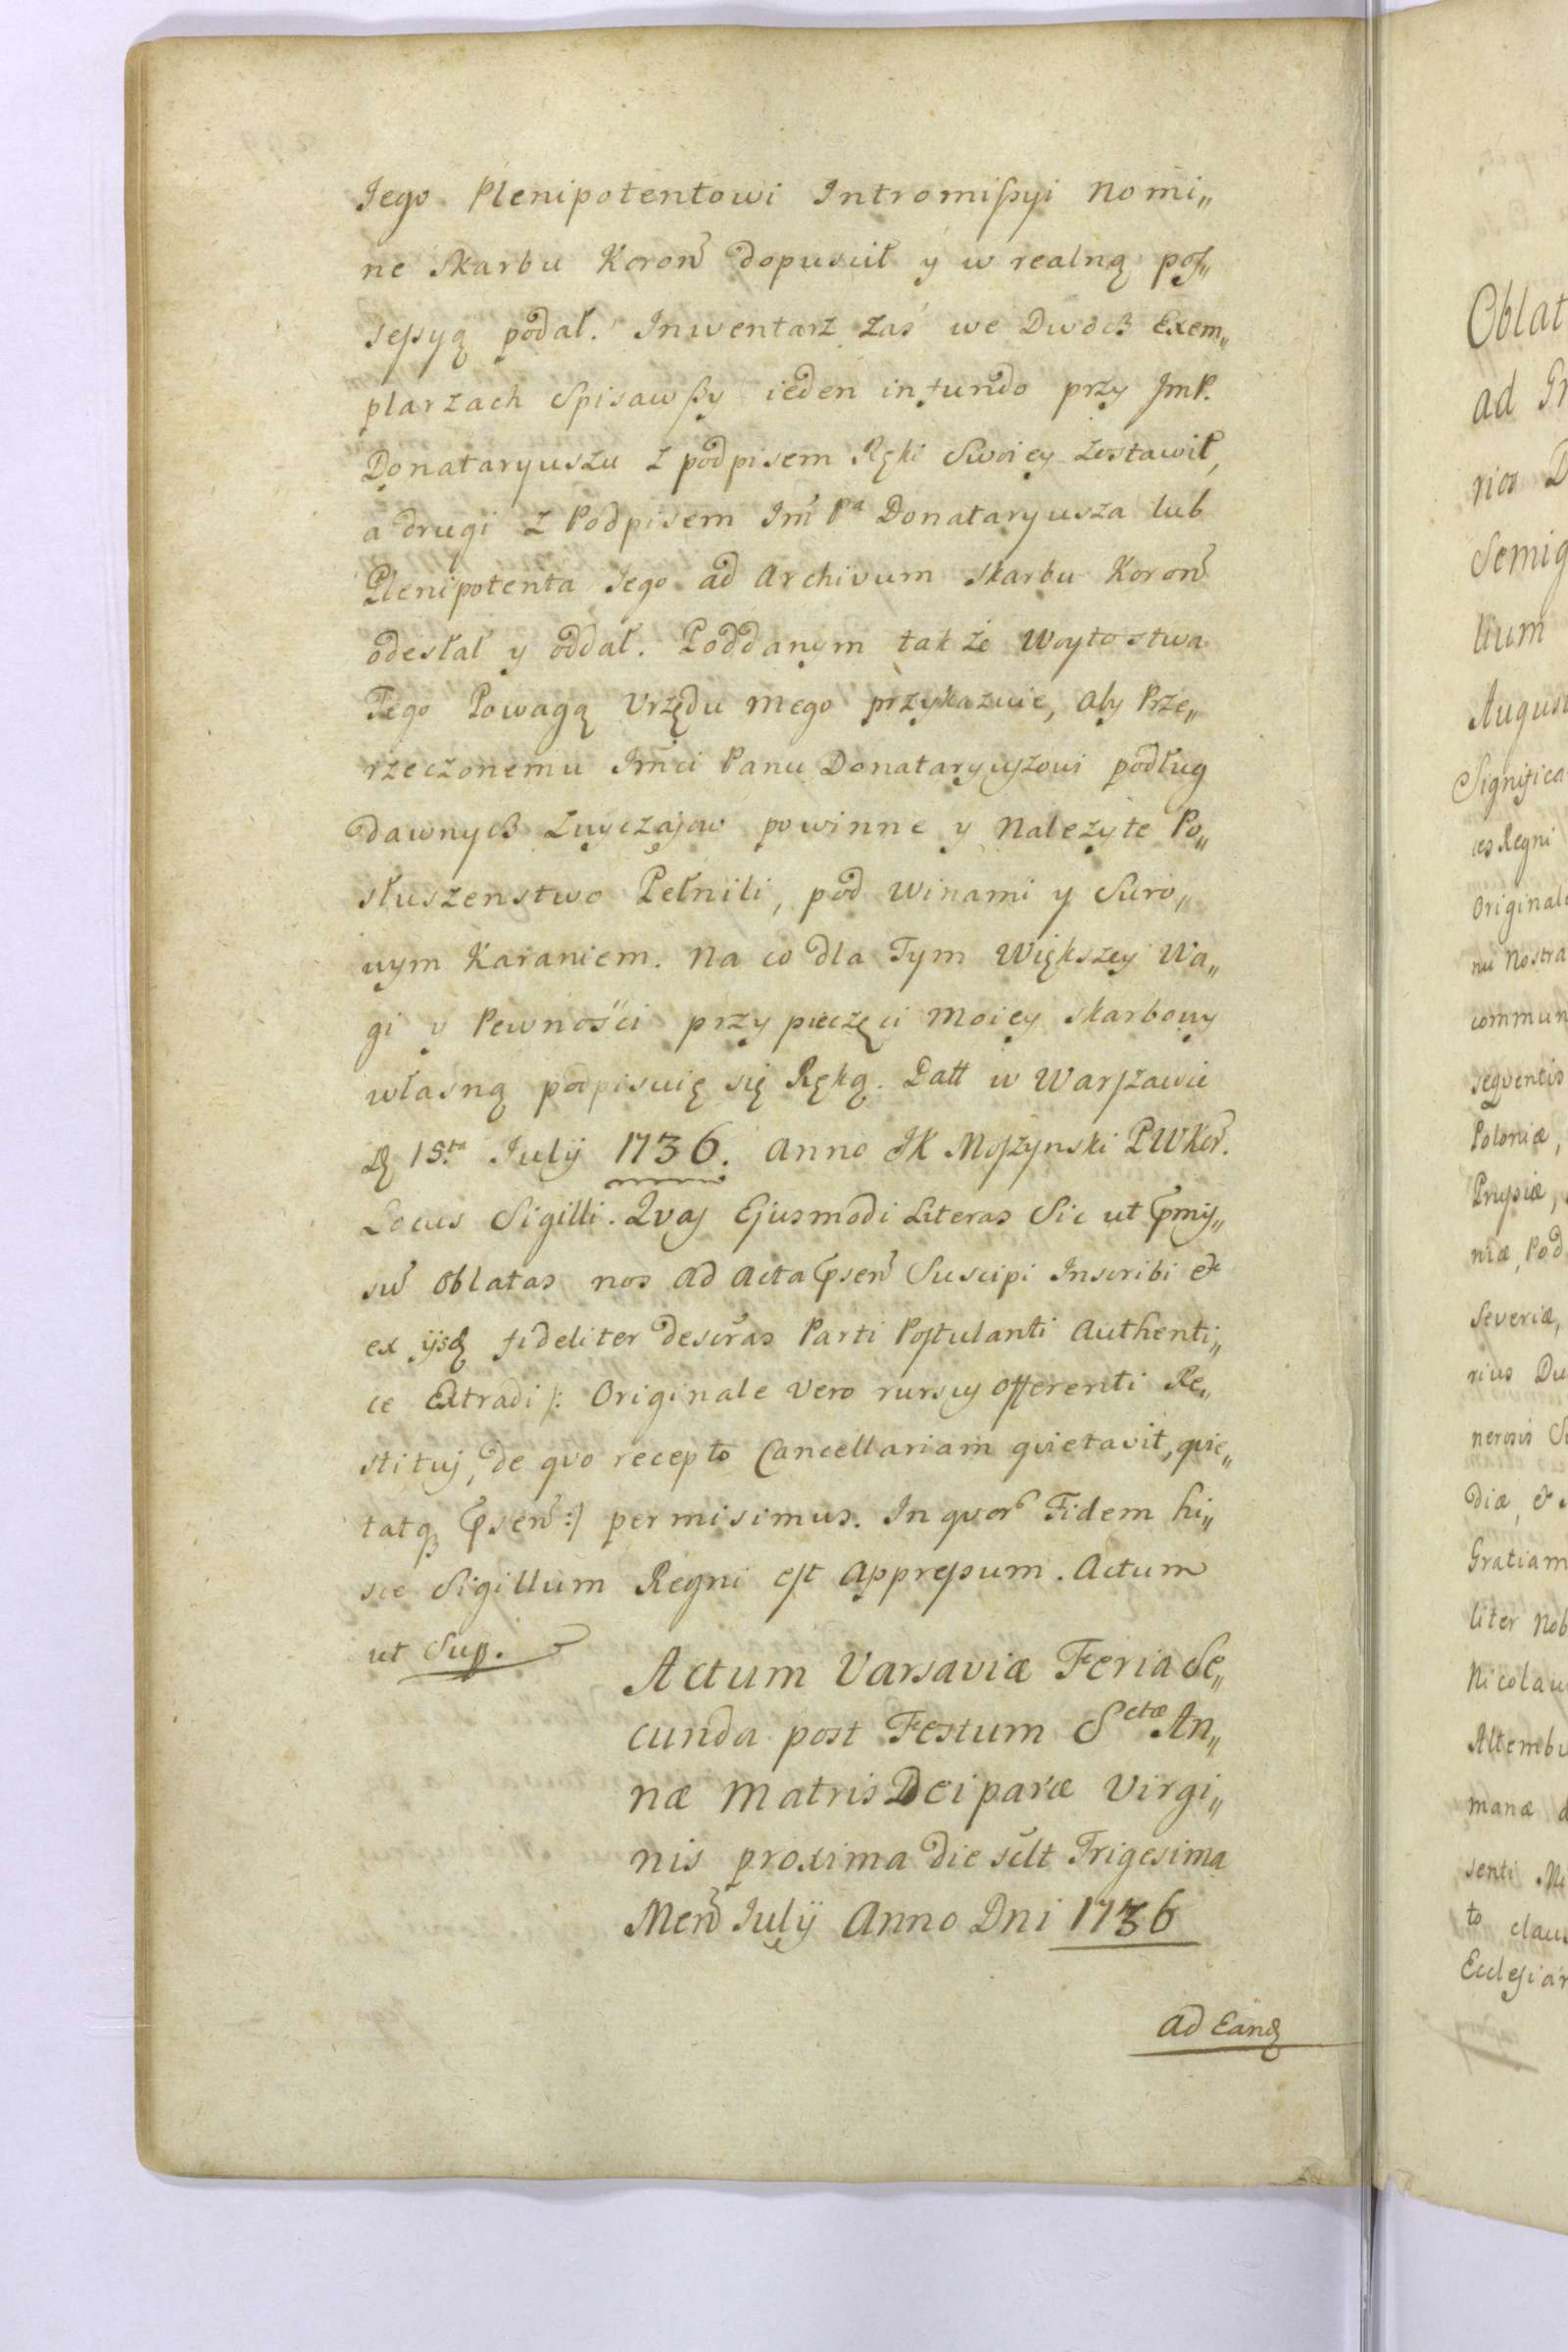 Jego Plenipotentowi Intromissyi nomi„
ne skarbu Koron̄ dopuscił y w realną pos„
sessyą podał. Inwentarz zaś we Dwoch Exem„
plarzach Spisawszy ieden in fundo przy JmP.
Donataryuszu z podpisem Ręki Swoiey zostawił,
a drugi z Podpisem Jm̄ Pª Donataryusza lub
Plenipotenta Jego ad Archivum skarbu Koron̄
odesłał y oddał. Poddanym także Woytostwa
Tego Powagą Vrzędu mego przykazuie, aby Prze„
rzeczonemu Jm̄ci Panu Donataryuszowi podług
dawnych zwyczajow powinne y Należyte Po„
słuszenstwo Pełnili, pod winami y Suro„
wym Karaniem. Na co dla Tym Większey Wa„
gi y Pewności przy pieczęci Moiey skarbowy
własną podpisuię się Ręką. Datt w Warszawie
D 15.ta July 1736. Anno JK Moszynski PWKor̄.
Locus Sigilli. Qvas Ejusmodi Literas Sic ut p̄mis„
sū Oblatas nos ad Acta p̄sen̄ Suscipi Inscribi &
ex ijsq fideliter descr̄as Parti Postulanti Authenti„
ce Extradi /: Originale Vero rursus Offerenti Re„
stituj, de qvo recepto Cancellariam qvietavit, qvie„
tatq p̄sen̄ :/ permisimus. In qvor̄ Fidem hi„
sce Sigillum Regni est Appressum. Actum
ut Sup.
Actum Varsaviæ Feria Se„
cunda post Festum Sctæ An„
næ Matris Deiparæ Virgi„
nis proxima die sc̄lt Trigesima
Men̄ Julij Anno Dni 1736
ad Eand
Oblat
ad Gr
rios D
Semig
lium
August
Significa
ces Regni
Originale
nu Nostra
commun
seqventis
Poloniæ,
Prussiæ,
niæ, Pod
Severiæ,
rius Du
nerosis S
diæ, &
Gratiam
liter Nob
Nicolau
Altembu
manæ
senti
to clau
Ecclesiar